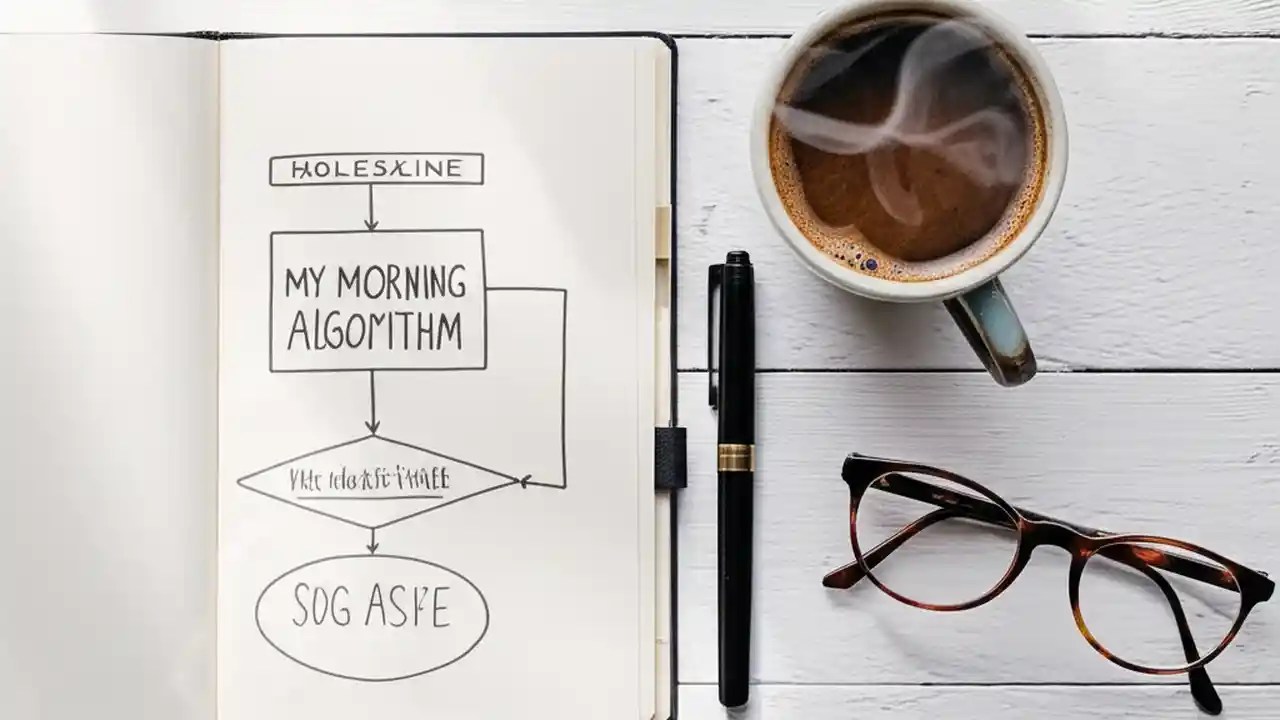 HOLESKINE
MY MORNING
ALGOMTHM
SOG ASFE